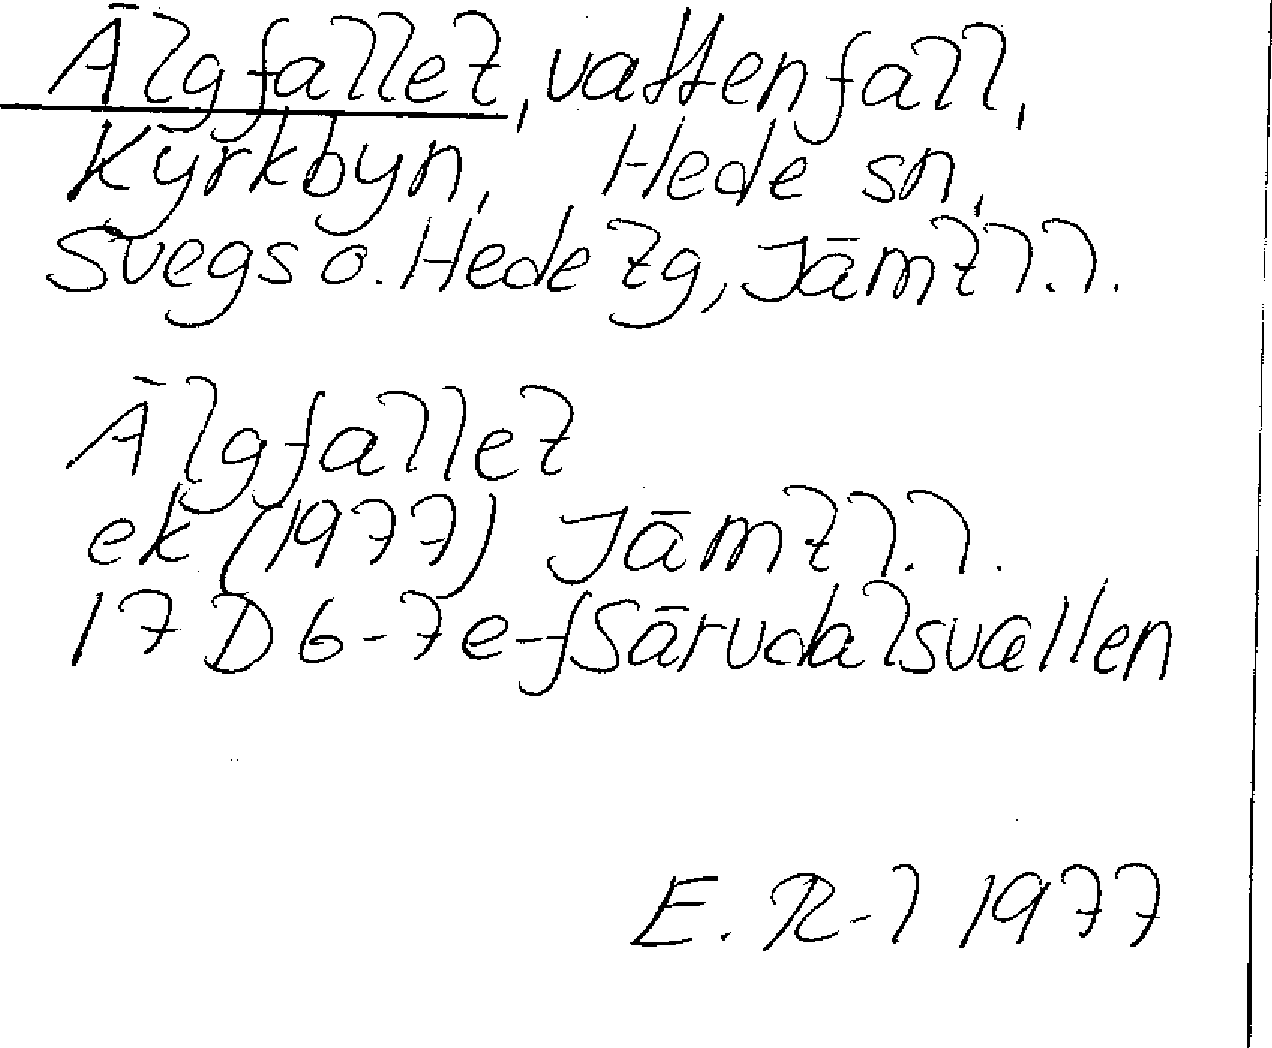 Älgfallet, vattenfall,
Kyrkbyn, Hede sn,
Svegs o. Hede tg, Jämtl.l.
Älgfallet
ek (1977) Jämtl.l.
17 D 6-7e-f Särvdalsvallen
E. R-l 1977